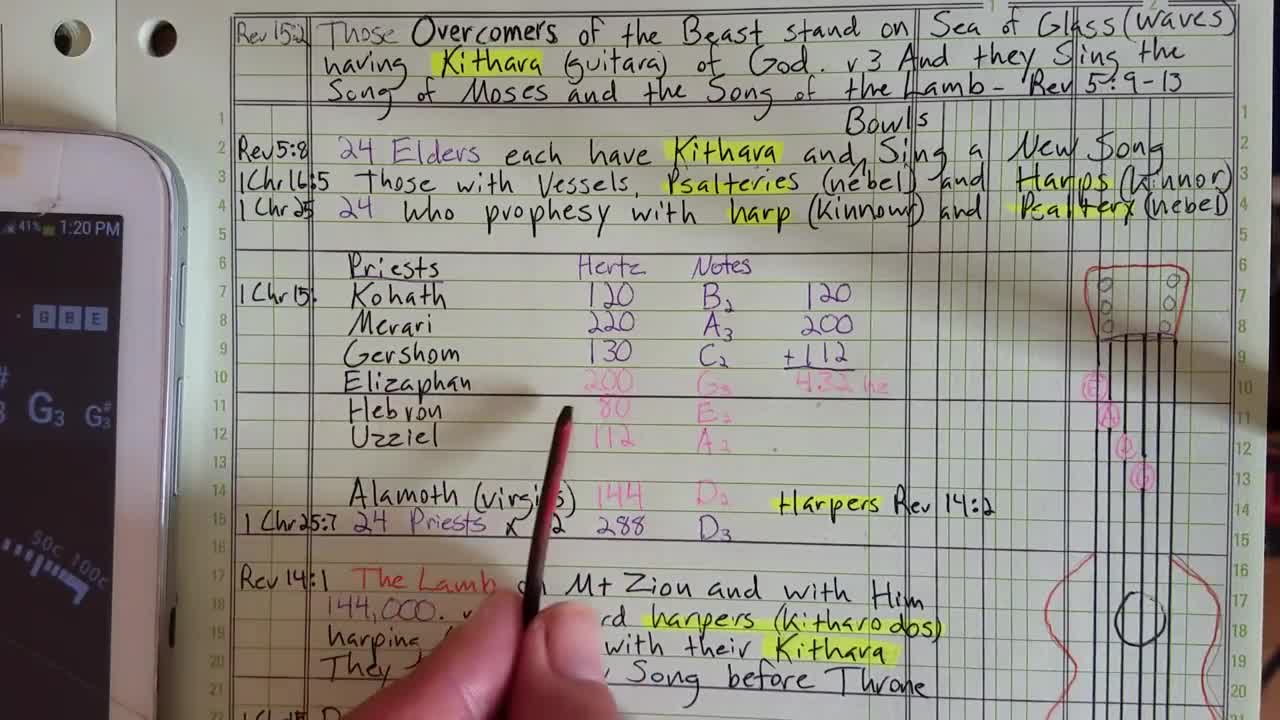 Rev 15:2 Those Overcomers of the Beast stand on Sea of Glass (waves)
having Kithara (guitara) of God. v 3 And they Sing the
Song of Moses and the Song of the Lamb - Rev 5:9-13
1 Bowls 1
2 Rev 5:8 24 Elders each have Kithara and Sing a New Song 2
3 1 Chr 16:5 Those with Vessels, Psalteries (nebel) and Harps (Kinnor) 3
4 1 Chr 25 24 who prophesy with harp (Kinnowr) and Psaltery (nebel) 4
5 5
6 Priests Hertz Notes 6
7 1 Chr 15: Kohath 120 B2 120 7
8 Merari 220 A3 200 8
9 Gershom 130 C2 +112 9
10 Elizaphan 200 G3 432 hz E 10
11 Hebron 80 E2 A 11
12 Uzziel 112 A2 12
13 G 13
14 Alamoth (virgins) 144 D2 Harpers Rev 14:2 14
15 1 Chr 25:7 24 Priests x 12 288 D3 15
16 16
17 Rev 14:1 The Lamb on Mt Zion and with Him 17
18 144,000. rd harpers (kitharodos) 18
19 harping with their Kithara 19
20 They Song before Throne 20
21 21
41% 1:20 PM
G B E
G3 G3#
50c 100c